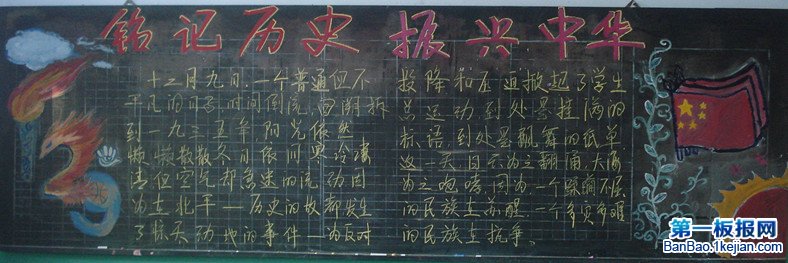 铭记历史 振兴中华
十二月九日,一个普通但不
平凡的日子,时间倒流,回溯拆
到一九三五年阳光依然
懒懒散散冬日依间寒冷凄
清但空气却急速的流动因
为在北平——历史的故都发生
了惊天动地的事件 为反对
投降和压迫掀起了学生
总运动到处是挂满的
标语到处是飘舞的纸单
这一天因云为之翻涌,大海
为之咆哮,因为一个不屈
的民族在苏醒,一个多灾多难
的民族在抗争。
129
第一板报网
BanBao.1kejian.com